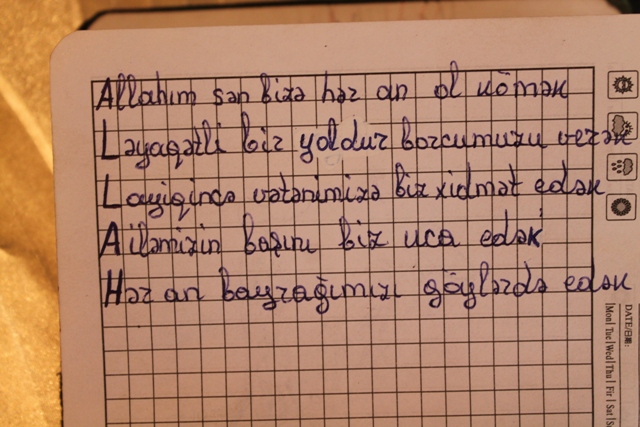 Allahım sən bizə hər an ol kömək
Ləyaqətli bir yoldur borcumuzu verək
Layiqincə vətənimizə biz xidmət edək
Ailəmizin başını biz uca edək
Hər an bayrağımızı göylərdə edək
DATE/日期:
Mon| Tue|Wed|Thu| Fir| Sat|